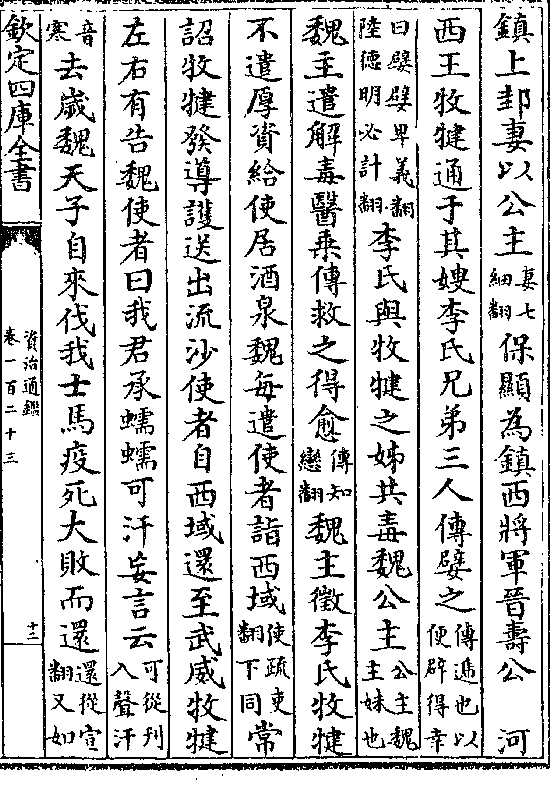 鎮上邽妻以公主妻七細翻保顯為鎮西將軍晉壽公　河
西王牧犍通于其嫂李氏兄弟三人傳嬖之傳遞也以便辟得幸
曰嬖嬖卑義翻陸德明必計翻李氏與牧犍之姊共毒魏公主公主魏主妹也
魏主遣解毒醫乘傳救之得愈傳知戀翻魏主徵李氏牧犍
不遣厚資給使居酒泉魏每遣使者詣西域使疏吏翻下同常
詔牧犍發導護送出流沙使者自西域還至武威牧犍
左右有告魏使者曰我君承蠕蠕可汗妄言云可從刋入聲汗
音寒去歲魏天子自來伐我士馬疫死大敗而還還從宣翻又如
欽定四庫全書
資治通鑑
卷一百二十三
十三